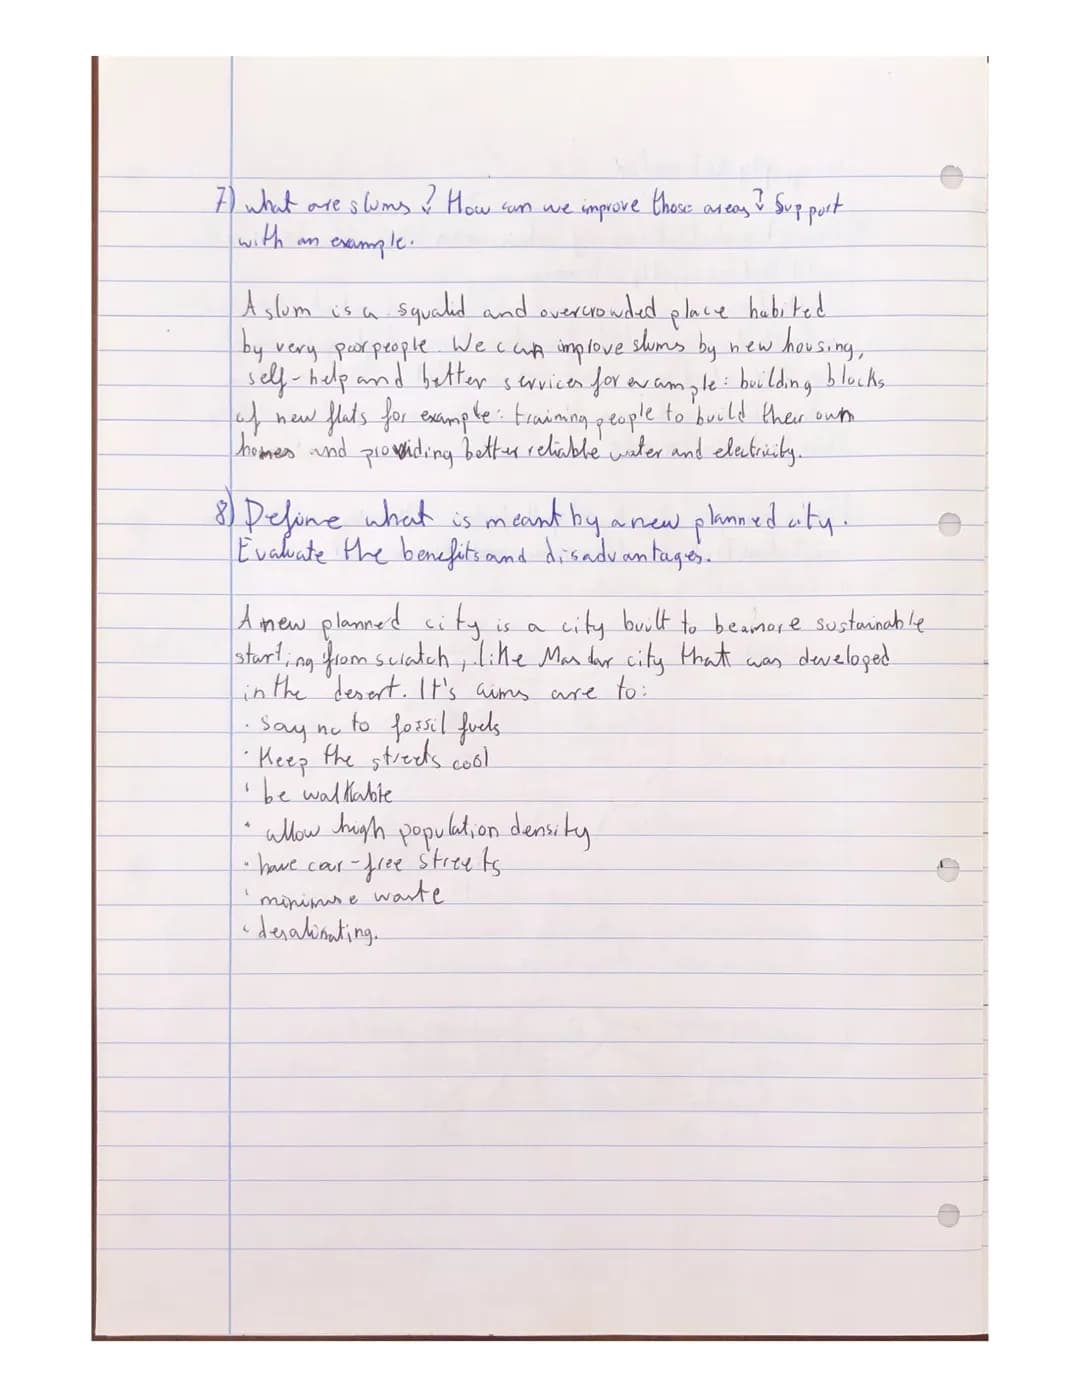 7) What are slums? How can we improve those areas? Support
with an example.
A slum is a squalid and overcrowded place habited
by very poor people. We can improve slums by new housing,
self-help and better services for example: building blocks
of new flats for example: training people to build their own
homes and providing better reliable water and electricity.
8) Define what is meant by a new planned city.
Evaluate the benefits and disadvantages.
A new planned city is a city built to be a more sustainable
starting from scratch, like Masdar city that was developed
in the desert. It's aims are to:
· Say no to fossil fuels
· Keep the streets cool
· be walkable
· allow high population density
· have car-free streets
· minimise waste
· desalinating.